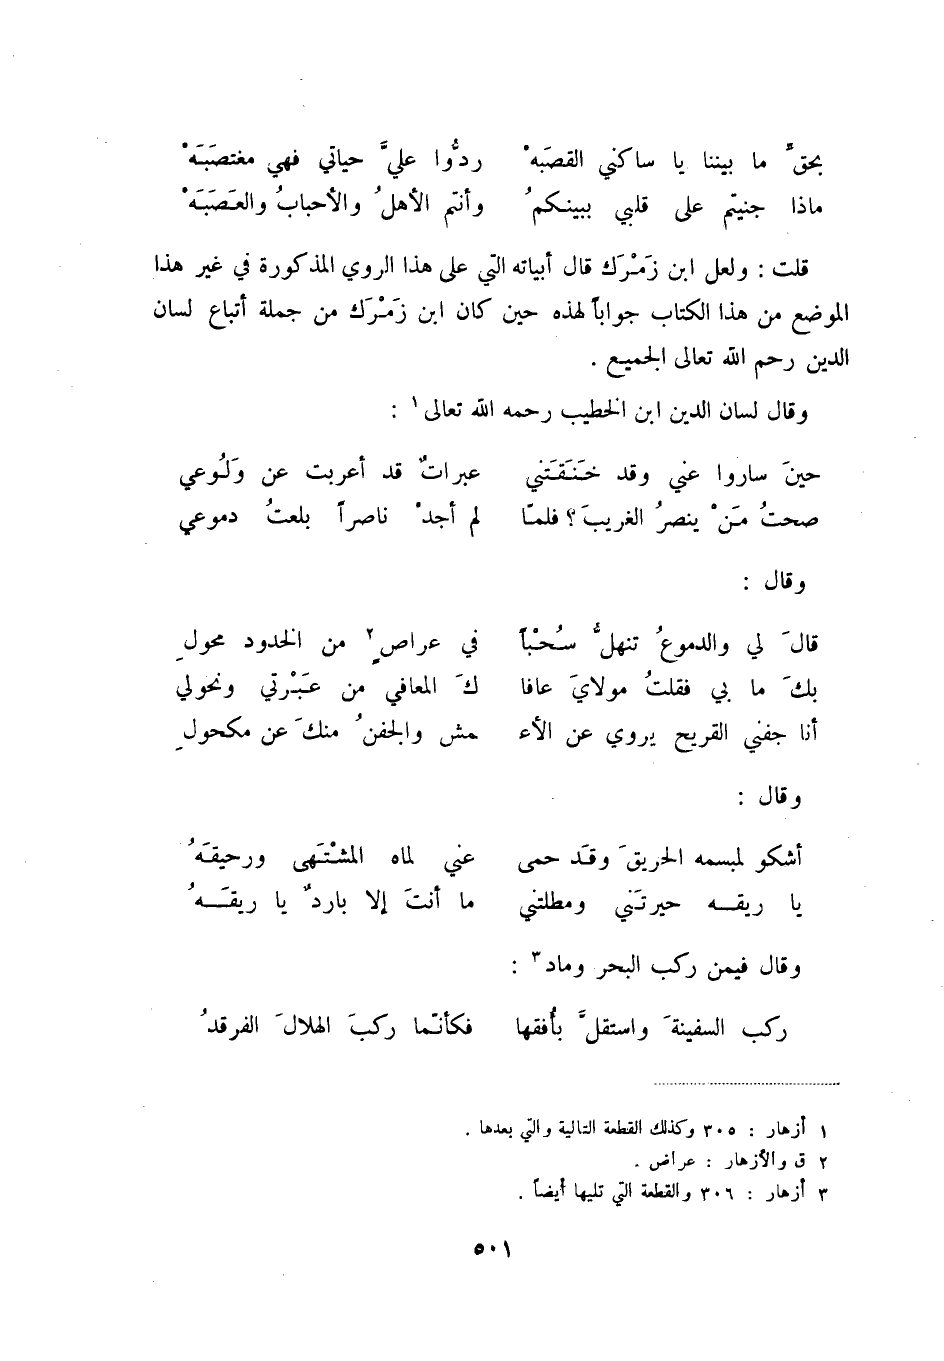 بحقّ ما بيننا يا ساكني القصَبهْ ردُّوا عليَّ حياتي فهي مغتصَبَهْ
ماذا جنيتم على قلبي ببينكمُ وأنتم الأهلُ والأحبابُ والعَصَبَهْ
قلت : ولعل ابن زَمْرَك قال أبياته التي على هذا الروي المذكورة في غير هذا
الموضع من هذا الكتاب جواباً لهذه حين كان ابن زَمْرَك من جملة أتباع لسان
الدين رحم الله تعالى الجميع .
وقال لسان الدين ابن الخطيب رحمه الله تعالى١ :
حينَ ساروا عني وقد خَنَقَتني عبراتٌ قد أعربت عن وَلُوعي
صحتُ مَنْ ينصرُ الغريبَ ؟ فلمّا لم أجدْ ناصراً بلعتُ دموعي
وقال :
قالَ لي والدموعُ تنهلُّ سُحْباً في عراصٍ٢ من الخدود محولِ
بكَ ما بي فقلتُ مولايَ عافا كَ المعافي من عَبْرتي ونحولي
أنا جفني القريح يروي عن الأعـ ـمش والجفنُ منكَ عن مكحولِ
وقال :
أشكو لمبسمه الحريقَ وقَد حمى عني لماه المشْتَهى ورحيقَهُ
يا ريقـه حيرتَني ومطلتني ما أنتَ إلا باردٌ يا ريقَـهُ
وقال فيمن ركب البحر وماد٣ :
ركب السفينةَ واستقلَّ بأُفقها فكأنّما ركبَ الهلالَ الفرقدُ
١ أزهار : ٣٠٥ وكذلك القطعة التالية والتي بعدها .
٢ ق والأزهار : عراض .
٣ أزهار : ٣٠٦ والقطعة التي تليها أيضاً .
٥٠١